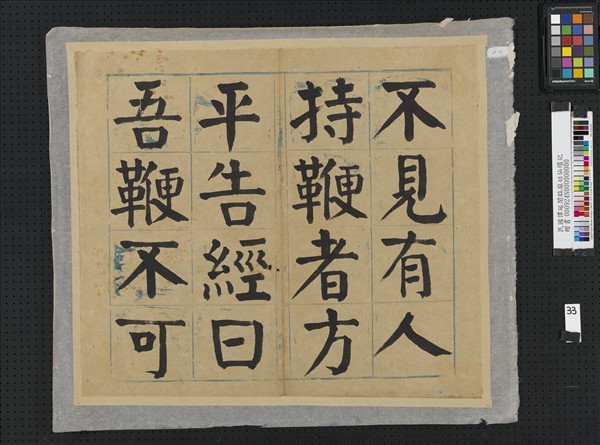 不見有人
持鞭者方
平告經曰
吾鞭不可
33